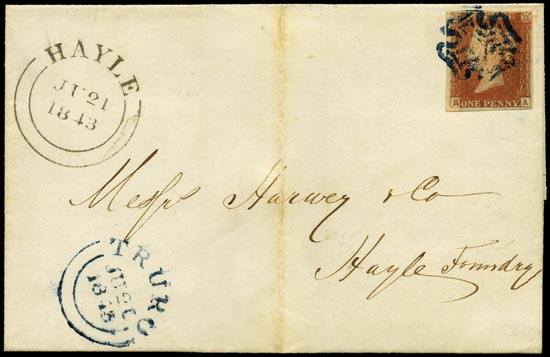 HAYLE
JU 21
1843
ONE PENNY
A
Messrs Harvey & Co
Hayle Foundry
TRURO
JU 20
1843